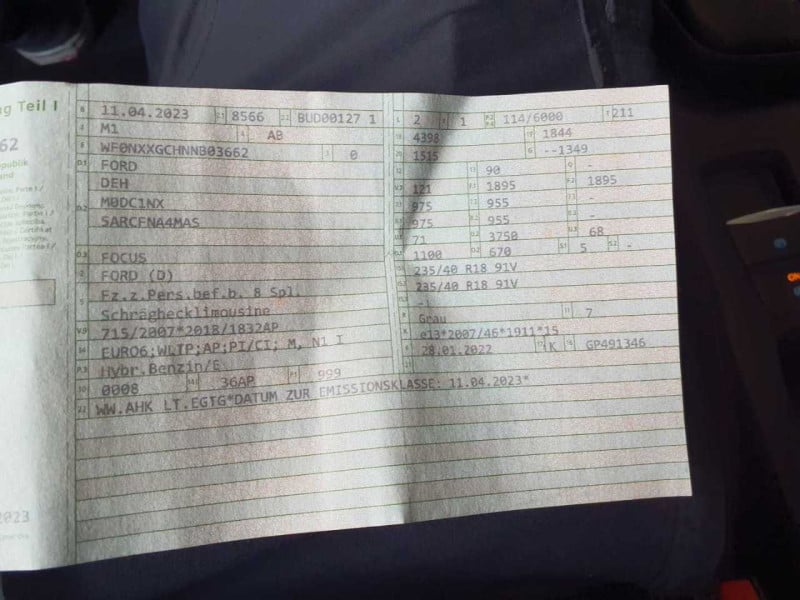 ng Teil I
62
epublik
and
B 11.04.2023 2.1 8566 2.2 BUD00127 1
J M1 4 AB
E WF0NXXGCHNNB03662 3 0
D.1 FORD
DEH
D.2 M0DC1NX
5ARCFNA4MAS
D.3 FOCUS
2 FORD (D)
5 Fz.z.Pers.bef.b. 8 Spl.
Schräghecklimousine
V.9 715/2007*2018/1832AP
14 EURO6;WLTP;AP;PI/CI; M, N1 I
P.3 Hybr.Benzin/E
10 0008 14.1 36AP P.1 999
22 WW.AHK LT.EGTG*DATUM ZUR EMISSIONSKLASSE: 11.04.2023*
L 2 9 1 P.2 P.4 114/6000 T 211
18 4398 19 1844
20 1515 G --1349
90 -
121 1895 1895
975 955 -
975 955 -
71 3750 68
1100 670 S.1 5 S.2 -
235/40 R18 91V
235/40 R18 91V
Grau 11 7
K e13*2007/46*1911*15
6 28.01.2022 17 K 16 GP491346
21
2023